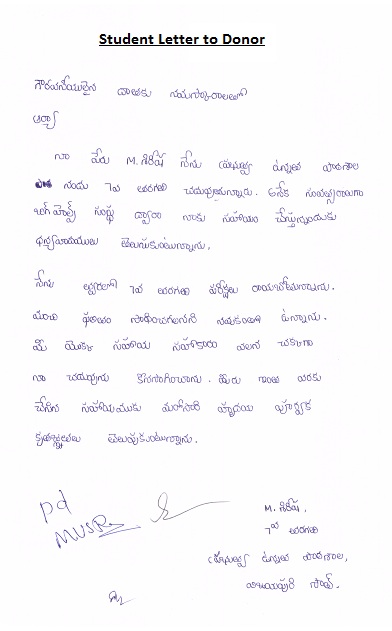 Student Letter to Donor
గౌరవనీయులైన దాతకు నమస్కారాలతో
ఆర్యా
నా పేరు M. శిరీష నేను ప్రభుత్వ ఉన్నత పాఠశాల
నందు 7వ తరగతి చదువుతున్నాను. అనేక సంవత్సరాలుగా
సంస్థ ద్వారా నాకు సహాయం చేస్తున్నందుకు
ధన్యవాదములు తెలుపుకుంటున్నాను.
నేను త్వరలో 7వ తరగతి పరీక్షలు రాయబోతున్నాను.
మంచి ఫలితం సాధించగలనని నమకంతో ఉన్నాను.
మీ యొక్క సహాయ సహకారం వలన చక్కగా
నా చదువును కొనసాగించాను. మీరు ఇంత వరకు
చేసిన సహాయముకు మరోసారి హృదయ పూర్వక
కృతజ్ఞతలు తెలుపుకుంటున్నాను.
M. శిరీష,
7వ తరగతి
ప్రభుత్వ ఉన్నత పాఠశాల,
విజయపురి సౌత్.
pd